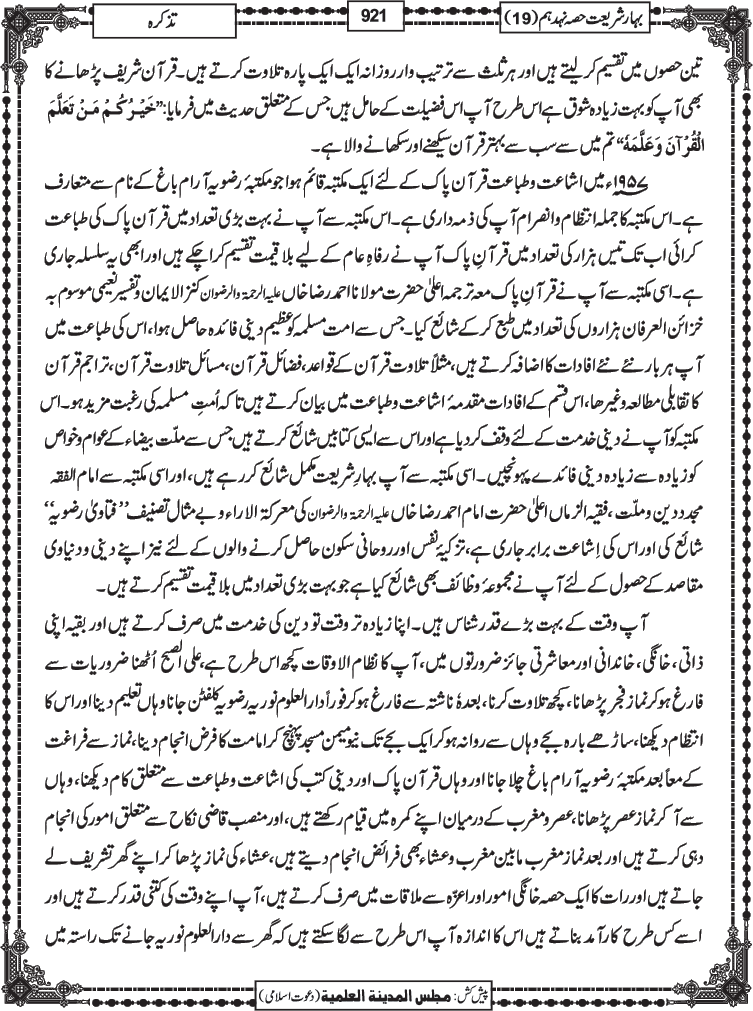 بہار شریعت حصہ نہدہم (19)
921
تذکرہ
تین حصوں میں تقسیم کر لیتے ہیں اور ہر ثلث سے ترتیب وار روزانہ ایک ایک پارہ تلاوت کرتے ہیں۔ قرآن شریف پڑھانے کا
بھی آپ کو بہت زیادہ شوق ہے اس طرح آپ اس فضیلت کے حامل ہیں جس کے متعلق حدیث میں فرمایا: ”خَیْرُکُمْ مَنْ تَعَلَّمَ
الْقُرْآنَ وَعَلَّمَہٗ“ تم میں سے سب سے بہتر قرآن سیکھنے اور سکھانے والا ہے۔
۱۹۵۷ء میں اشاعت و طباعت قرآن پاک کے لئے ایک مکتبہ قائم ہوا جو مکتبۂ رضویہ آرام باغ کے نام سے متعارف
ہے۔ اس مکتبہ کا جملہ انتظام و انصرام آپ کی ذمہ داری ہے۔ اس مکتبہ سے آپ نے بہت بڑی تعداد میں قرآن پاک کی طباعت
کرائی اب تک تیس ہزار کی تعداد میں قرآنِ پاک آپ نے رفاہِ عام کے لیے بلا قیمت تقسیم کرا چکے ہیں اور ابھی یہ سلسلہ جاری
ہے۔ اسی مکتبہ سے آپ نے قرآنِ پاک معہ ترجمہ اعلیٰ حضرت مولانا احمد رضا خاں علیہ الرحمۃ والرضوان کنز الایمان و تفسیر نعیمی موسوم بہ
خزائن العرفان ہزاروں کی تعداد میں طبع کر کے شائع کیا۔ جس سے امت مسلمہ کو عظیم دینی فائدہ حاصل ہوا، اس کی طباعت میں
آپ ہر بار نئے نئے افادات کا اضافہ کرتے ہیں، مثلاً تلاوت قرآن کے قواعد، فضائل قرآن، مسائل تلاوت قرآن، تراجم قرآن
کا تقابلی مطالعہ وغیرھا، اس قسم کے افادات مقدمۂ اشاعت و طباعت میں بیان کرتے ہیں تاکہ اُمتِ مسلمہ کی رغبت مزید ہو۔ اس
مکتبہ کو آپ نے دینی خدمت کے لئے وقف کر دیا ہے اور اس سے ایسی کتابیں شائع کرتے ہیں جس سے ملّت بیضاء کے عوام و خواص
کو زیادہ سے زیادہ دینی فائدے پہونچیں۔ اسی مکتبہ سے آپ بہارِ شریعت مکمل شائع کر رہے ہیں، اور اسی مکتبہ سے امام الفقہ
مجدد دین و ملّت، فقیہ الزماں اعلیٰ حضرت امام احمد رضا خاں علیہ الرحمۃ والرضوان کی معرکۃ الاراء و بے مثال تصنیف ”فتاویٰ رضویہ“
شائع کی اور اس کی اِشاعت برابر جاری ہے، تزکیۂ نفس اور روحانی سکون حاصل کرنے والوں کے لئے نیز اپنے دینی و دنیاوی
مقاصد کے حصول کے لئے آپ نے مجموعۂ وظائف بھی شائع کیا ہے جو بہت بڑی تعداد میں بلا قیمت تقسیم کرتے ہیں۔
آپ وقت کے بہت بڑے قدر شناس ہیں۔ اپنا زیادہ تر وقت تو دین کی خدمت میں صرف کرتے ہیں اور بقیہ اپنی
ذاتی، خانگی، خاندانی اور معاشرتی جائز ضرورتوں میں، آپ کا نظام الاوقات کچھ اس طرح ہے، علی الصبح اُٹھنا ضروریات سے
فارغ ہو کر نماز فجر پڑھانا، کچھ تلاوت کرنا، بعدۂ ناشتہ سے فارغ ہو کر فوراً دارالعلوم نوریہ رضویہ کلفٹن جانا وہاں تعلیم دینا اور اس کا
انتظام دیکھنا، ساڑھے بارہ بجے وہاں سے روانہ ہو کر ایک بجے تک نیو میمن مسجد پہنچ کر امامت کا فرض انجام دینا، نماز سے فراغت
کے معاً بعد مکتبۂ رضویہ آرام باغ چلا جانا اور وہاں قرآن پاک اور دینی کتب کی اشاعت و طباعت سے متعلق کام دیکھنا، وہاں
سے آ کر نماز عصر پڑھانا، عصر و مغرب کے درمیان اپنے کمرہ میں قیام رکھتے ہیں، اور منصب قاضی نکاح سے متعلق امور کی انجام
دہی کرتے ہیں اور بعد نماز مغرب مابین مغرب و عشاء بھی فرائض انجام دیتے ہیں، عشاء کی نماز پڑھا کر اپنے گھر تشریف لے
جاتے ہیں اور رات کا ایک حصہ خانگی امور اور اعزّہ سے ملاقات میں صرف کرتے ہیں، آپ اپنے وقت کی کتنی قدر کرتے ہیں اور
اسے کس طرح کارآمد بناتے ہیں اس کا اندازہ آپ اس طرح سے لگا سکتے ہیں کہ گھر سے دارالعلوم نوریہ جانے تک راستہ میں
پیش کش: مجلس المدینۃ العلمیۃ (دعوت اسلامی)